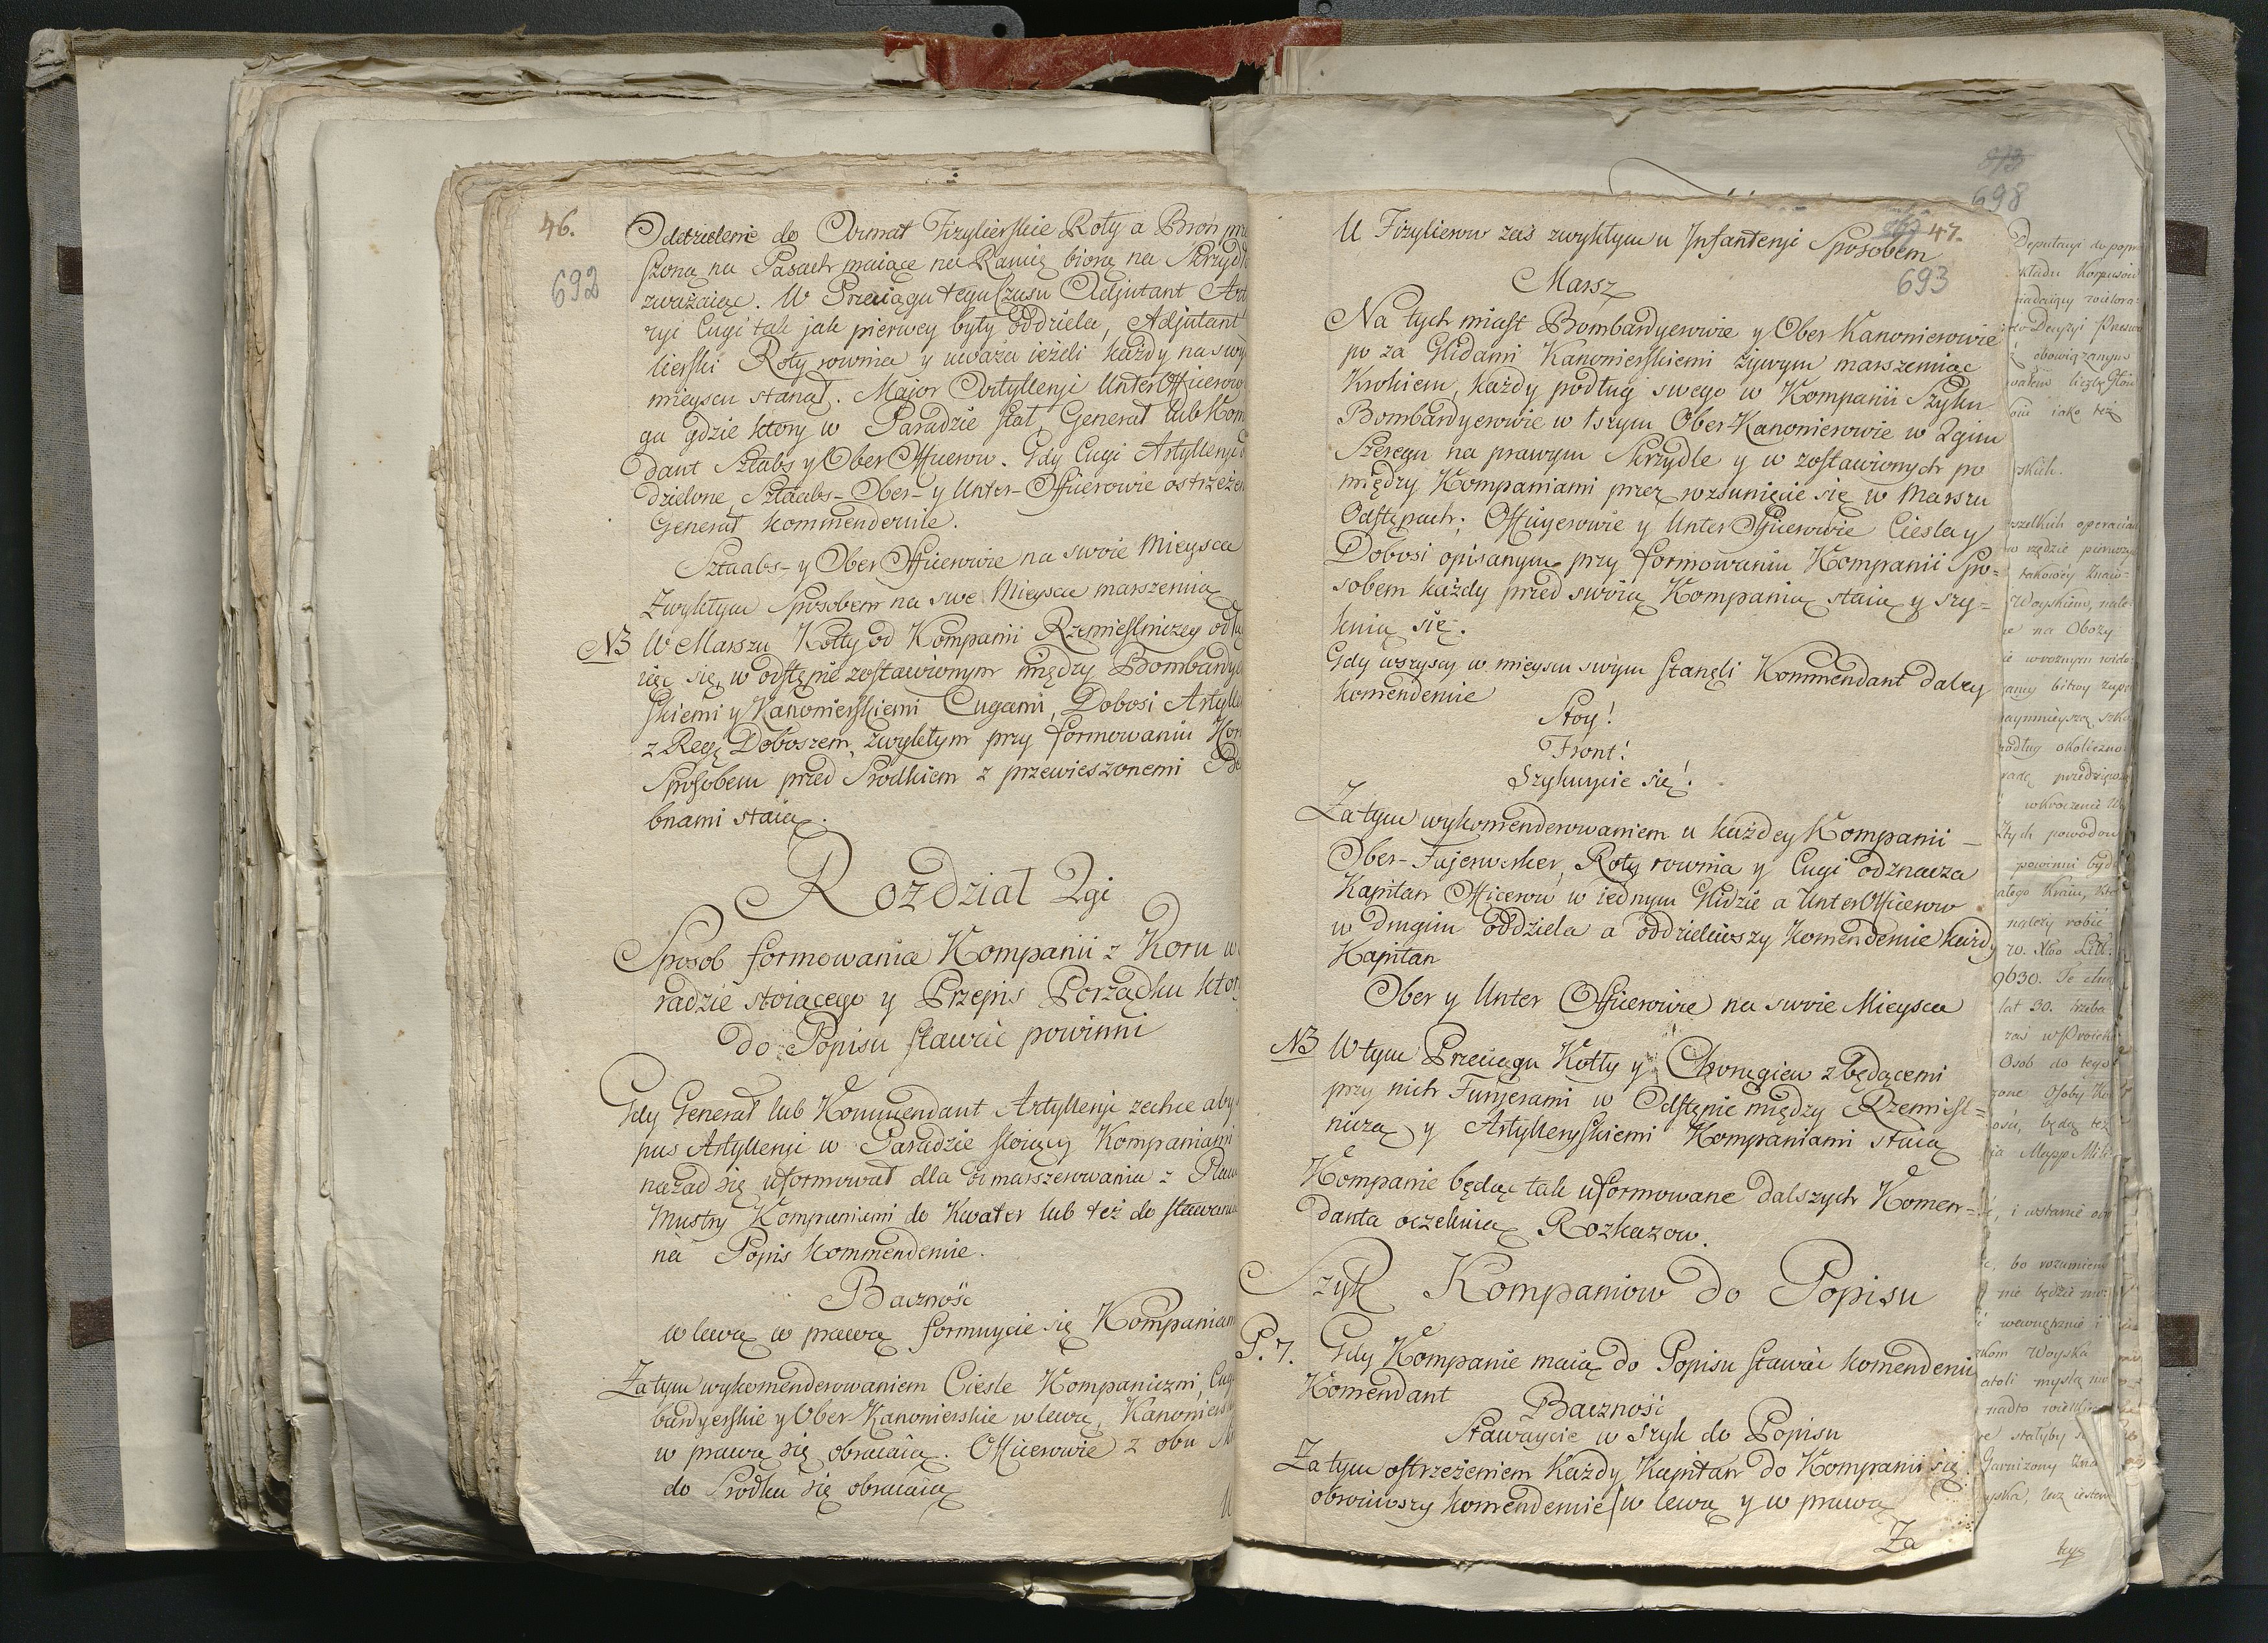 46.
692
Oddzielenie do Armat Fizylierskie Roty a Broń
szoną na Pasach maiące na Ramię biorą na Skrzydła
zważaiąc. W Przeciągu tegu Czasu Adjutant
ryi Cugi tak jak pierwey były oddziela, Adjutant
lierski Roty rownia y uważa ieżeli każdy na swym
mieyscu stanął. Major Artylleryi UnterOfficerow
ga gdzie ktory w Paradzie stał, Generał lub
dant Sztabs y Ober Officerow. Gdy Cugi Artylleryi
dzielone, Sztaabs-Ober- y Unter-Officerowie ostrzeżeni
Generał kommenderuie.
Sztaabs- y Ober Officerowie na swoie Mieysca
Zwykłym Sposobem na swe Mieysca marszeruią
NB W Marszu Kotły od Kompanii Rzemieslniczey
iąc się, w odstępie zostawionym między
skiemi y Kanonierskiemi Cugami, Dobosi
z Reg. Doboszem, zwykłym przy formowaniu
Sposobem przed Srodkiem z przewieszonemi
bnami staią.
Rozdział 2gi
Sposob formowania Kompanii z Koru
radzie stoiącego y Przepis Porządku
do Popisu stawać powinni
Gdy Generał lub Kommendant Artylleryi zechce aby
pus Artylleryi w Paradzie stoiący Kompaniami
nazad się uformował dla odmarszerowania z
Mustry Kompaniami do Kwater lub też do stawania
na Popis Kommenderuie.
Baczność
w lewą w prawą formuycie się Kompaniami
Za tym wykomenderowaniem Ciesle Kompaniczni,
bardyerskie y Ober-Kanonierskie w lewą,
w prawą się obracaią. Officerowie z obu
do Srodku się obracaią
U
47.
693
U Fizylierow zaś zwykłym u Infanteryi Sposobem
Marsz
Na tych miast Bombardyerowie y Ober Kanonierowie
po za Glidami Kanonierskiemi żywym marszeruiąc
Krokiem, każdy podług swego w Kompanii Szyku
Bombardyerowie w 1szym Ober-Kanonierowie w 2gim
Szeregu na prawym Skrzydle y w zostawionych po
między Kompaniami przez rozsunięcie się w Marszu
Odstępach; Officyerowie y Unter Officerowie Ciesla y
Dobosi opisanym przy formowaniu Kompanii Spo=
sobem każdy przed swoią Kompanią staią y szy=
kuią się.
Gdy wszyscy w mieyscu swym stanęli Kommendant daley
komenderuie
Stoy!
Front!
Szykuycie się!
Za tym wykomenderowaniem u każdey Kompanii –
Ober-Fajerwerker, Roty rownia y Cugi odznacza
Kapitan Officerow w iednym Glidzie a UnterOfficerow
w drugim oddziela a oddzieliwszy Komenderuie każdy
Kapitan
Ober y Unter Officerowie na swoie Mieysca
NB W tym Przeciągu Kotły y Chorągiew z będącemi
przy nich Furyerami w Odstępie między Rzemiesl=
niczą y Artylleryskiemi Kompaniami staią
Kompanie będąc tak uformowane dalszych Komen=
danta oczekuią Rozkazow.
Szyk Kompaniow do Popisu
P. 7. Gdy Kompanie maią do Popisu stawać komenderuie
Komendant
Baczność
Stawaycie w Szyk do Popisu
Za tym ostrzeżeniem Każdy Kapitan do Kompanii się
obrociwszy komenderuie w lewą y w prawą
Za
698
Deputacyi do
Korpusów
obowiązanym
liczbę
iako też
operacia
Woyskiem,
na Obozy
bitwy
podług
powodow
powinni
Kraiu,
należy robić
9630.
lat 30. trzeba
Osob do tego
zone Osoby
będą też
Mapp
bo rozumiem
nie będzie
wewnętrznie i
Woyska
myslą
nadto
Garnizony